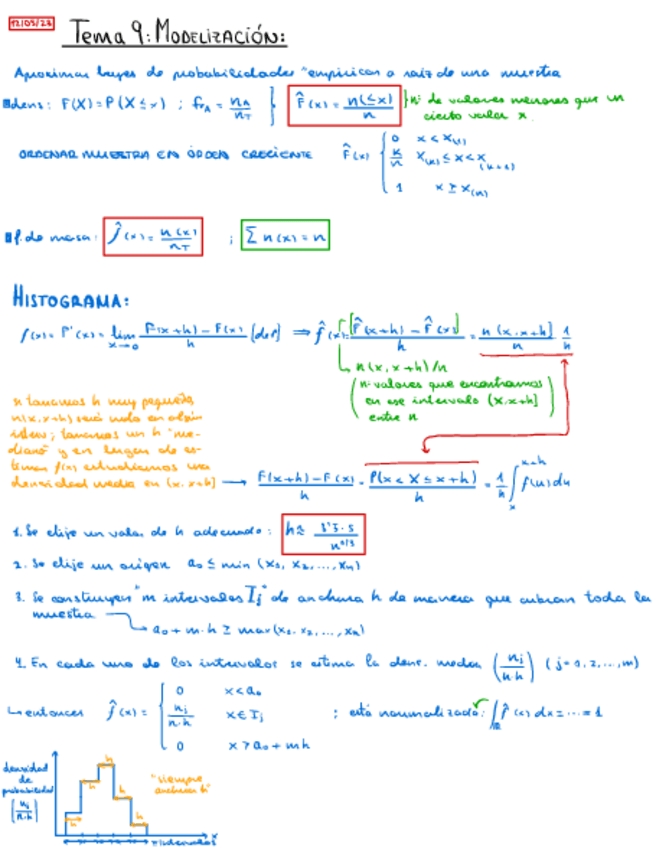 12/05/23
Tema 9: MODELIZACIÓN:
Aproximar leyes de probabilidades "empíricas a raíz de una muestra
dens: F(X) = P(X ≤ x) ; fr_A = n_A/n_T } F̂(x) = n(≤x)/n } nº de valores menores que un cierto valor x.
ORDENAR MUESTRA EN ORDEN CRECIENTE F̂(x) { 0 x < x_(1)
k/n x_(k) ≤ x < x_(k+1)
1 x ≥ x_(n)
f. de masa: f̂(x) = n(x)/n_T ; Σ n(x) = n
HISTOGRAMA:
f(x) = F'(x) = lim_{x→0} F(x+h) − F(x) / h (def) ⇒ f̂(x) = [F̂(x+h) − F̂(x)] / h = n(x, x+h] / n 1/h
n(x, x+h)/n
(nº valores que encontramos
en ese intervalo (x, x+h]
entre n)
si tomamos h muy pequeño
n(x, x+h) será nula en algún
interv; tomamos un h "me-
diano" y en lugar de es-
timar f(x) estudiamos una
densidad media en (x, x+h] → F(x+h) − F(x) / h = P(x < X ≤ x+h) / h = 1/h ∫_x^{x+h} f(u) du
1. Se elije un valor de h adecuado: h ≈ 3'5·s / n^{1/3}
2. Se elije un origen a₀ ≤ min (x₁, x₂, ..., xₙ)
3. Se construyen "m intervalos I_j" de anchura h de manera que cubran toda la
muestra → a₀ + m·h ≥ max(x₁, x₂, ..., xₙ)
4. En cada uno de los intervalos se estima la dens. media (n_j / n·h) (j = 1, 2, ..., m)
↳ entonces f̂(x) = { 0 x < a₀
n_j / n·h x ∈ I_j ; está normalizada: ∫_ℝ f̂(x) dx = ... = 1
0 x > a₀ + mh
densidad
de
probabilidad
(n_j / n·h)
h h h h h
"siempre
anchura h"
x
intervalos